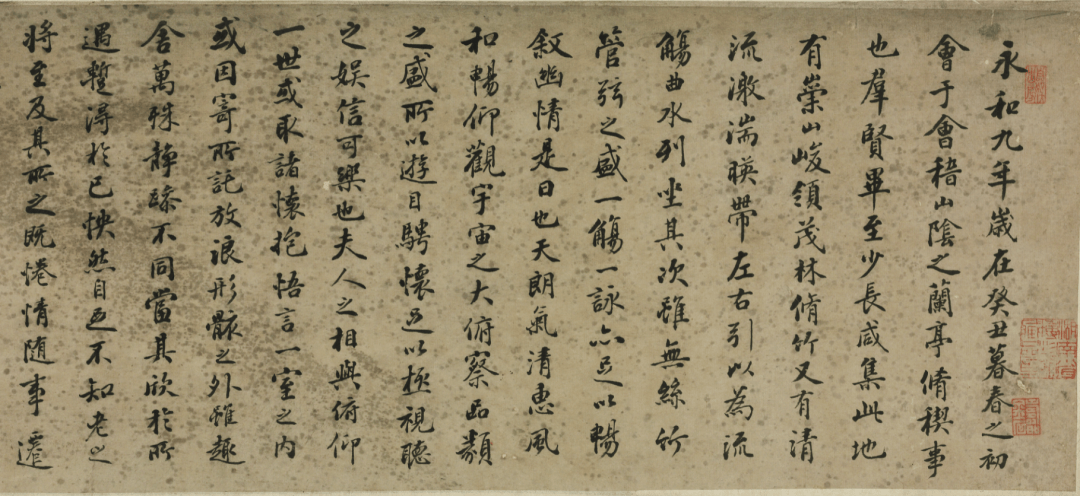 永和九年歲在癸丑暮春之初
會于會稽山陰之蘭亭脩稧事
也羣賢畢至少長咸集此地
有崇山峻領茂林脩竹又有清
流激湍暎帶左右引以為流
觴曲水列坐其次雖無絲竹
管弦之盛一觴一詠亦足以暢
敘幽情是日也天朗氣清惠風
和暢仰觀宇宙之大俯察品類
之盛所以遊目騁懷足以極視聽
之娛信可樂也夫人之相與俯仰
一世或取諸懷抱悟言一室之內
或因寄所託放浪形骸之外雖趣
舍萬殊靜躁不同當其欣於所
遇暫得於己怏然自足不知老之
將至及其所之既惓情隨事遷